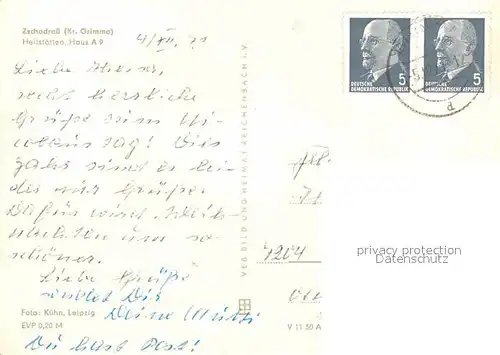 Zschadraß (Kr. Grimma)
Heilstätten, Haus A 9
4/XII. 71
Liebe
recht herzliche
Grüße zum Ni-
colaus Tag! Dies
Jahr sind es lei-
der nur Grüße.
Dafür wird Weih-
nachten um so
schöner.
Liebe Grüße
sendet Dir
Deine Mutti
Du hast Post!
Foto: Kühn, Leipzig
EVP 0,20 M
VEB BILD UND HEIMAT REICHENBACH I. V.
V 11 50 A
5
DEUTSCHE
DEMOKRATISCHE REPUBLIK
5
DEUTSCHE
DEMOKRATISCHE REPUBLIK
d
7204
privacy protection
Datenschutz